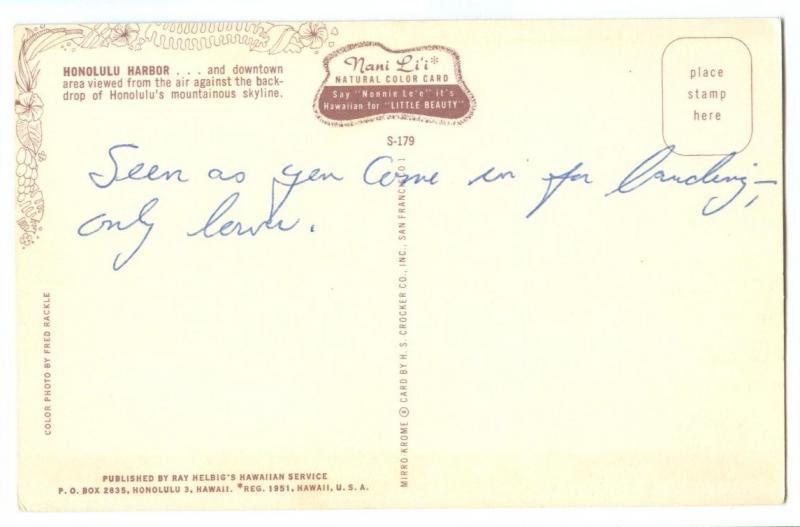 HONOLULU HARBOR . . . and downtown
area viewed from the air against the back-
drop of Honolulu's mountainous skyline.
Nani Li'i*
NATURAL COLOR CARD
Say "Nonnie Le'e" it's
Hawaiian for "LITTLE BEAUTY"
S-179
place
stamp
here
Seen as you come in for landing—,
only lower.
COLOR PHOTO BY FRED RACKLE
MIRRO-KROME ® CARD BY H. S. CROCKER CO., INC., SAN FRANCISCO 1
PUBLISHED BY RAY HELBIG'S HAWAIIAN SERVICE
P. O. BOX 2835, HONOLULU 3, HAWAII. *REG. 1951, HAWAII, U. S. A.